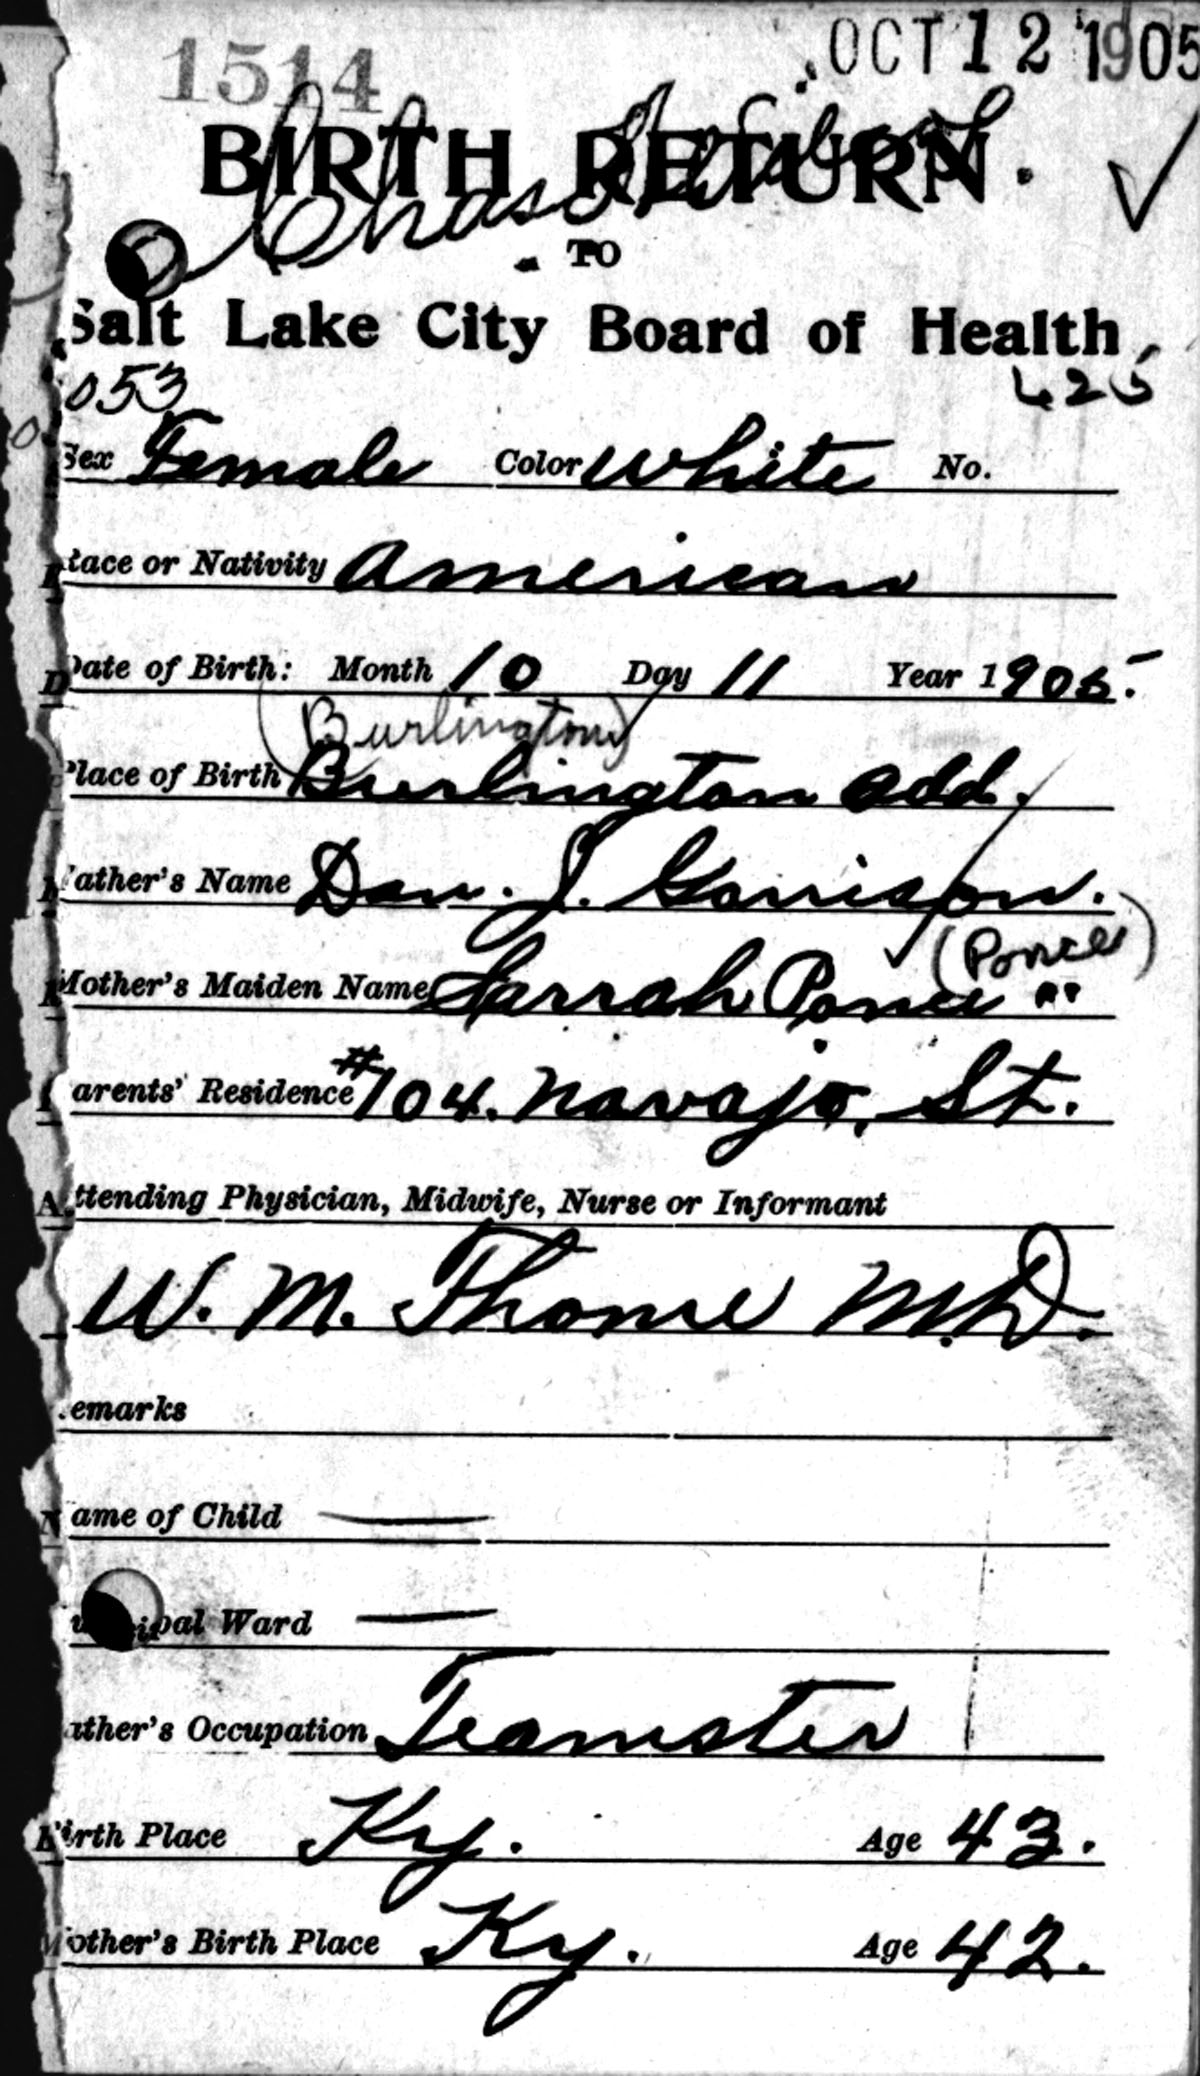 1514
OCT 12 1905
BIRTH RETURN
Chas
TO
Salt Lake City Board of Health
053
425
Sex Female Color White No.
Race or Nativity American
Date of Birth: Month 10 Day 11 Year 1905.
(Burlington)
Place of Birth Burlington add.
Father's Name Dan. J. Garrison.
(Ponce)
Mother's Maiden Name Sarrah Ponce "
Parents' Residence #704. Navajo, St.
Attending Physician, Midwife, Nurse or Informant
W. M. Thorne M.D.
emarks
Name of Child —
pal Ward —
ather's Occupation Teamster
Birth Place Ky. Age 43.
Mother's Birth Place Ky. Age 42.